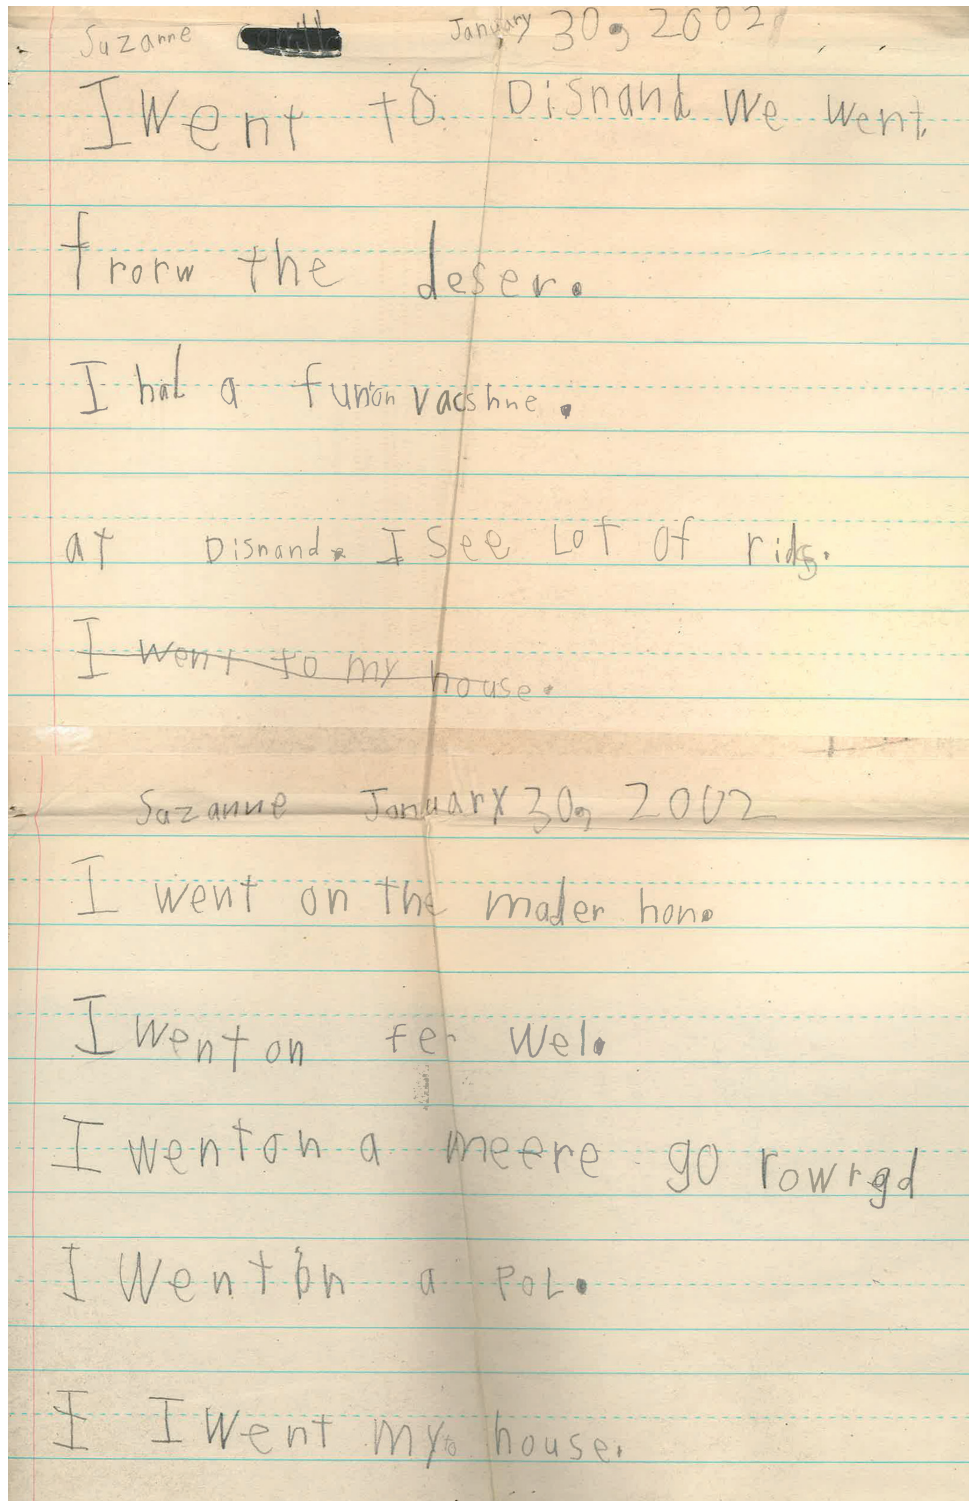 Suzanne January 30, 2002
I went to Disnand we went
frorw the deser.
I had a funon vacshne.
at Disnand. I see Lot of rids.
I went to my house.
Suzanne January 30, 2002
I went on the mader hon.
I went on fer wel.
I went on a meere go rowrgd
I went on a POL.
I I went my to house.